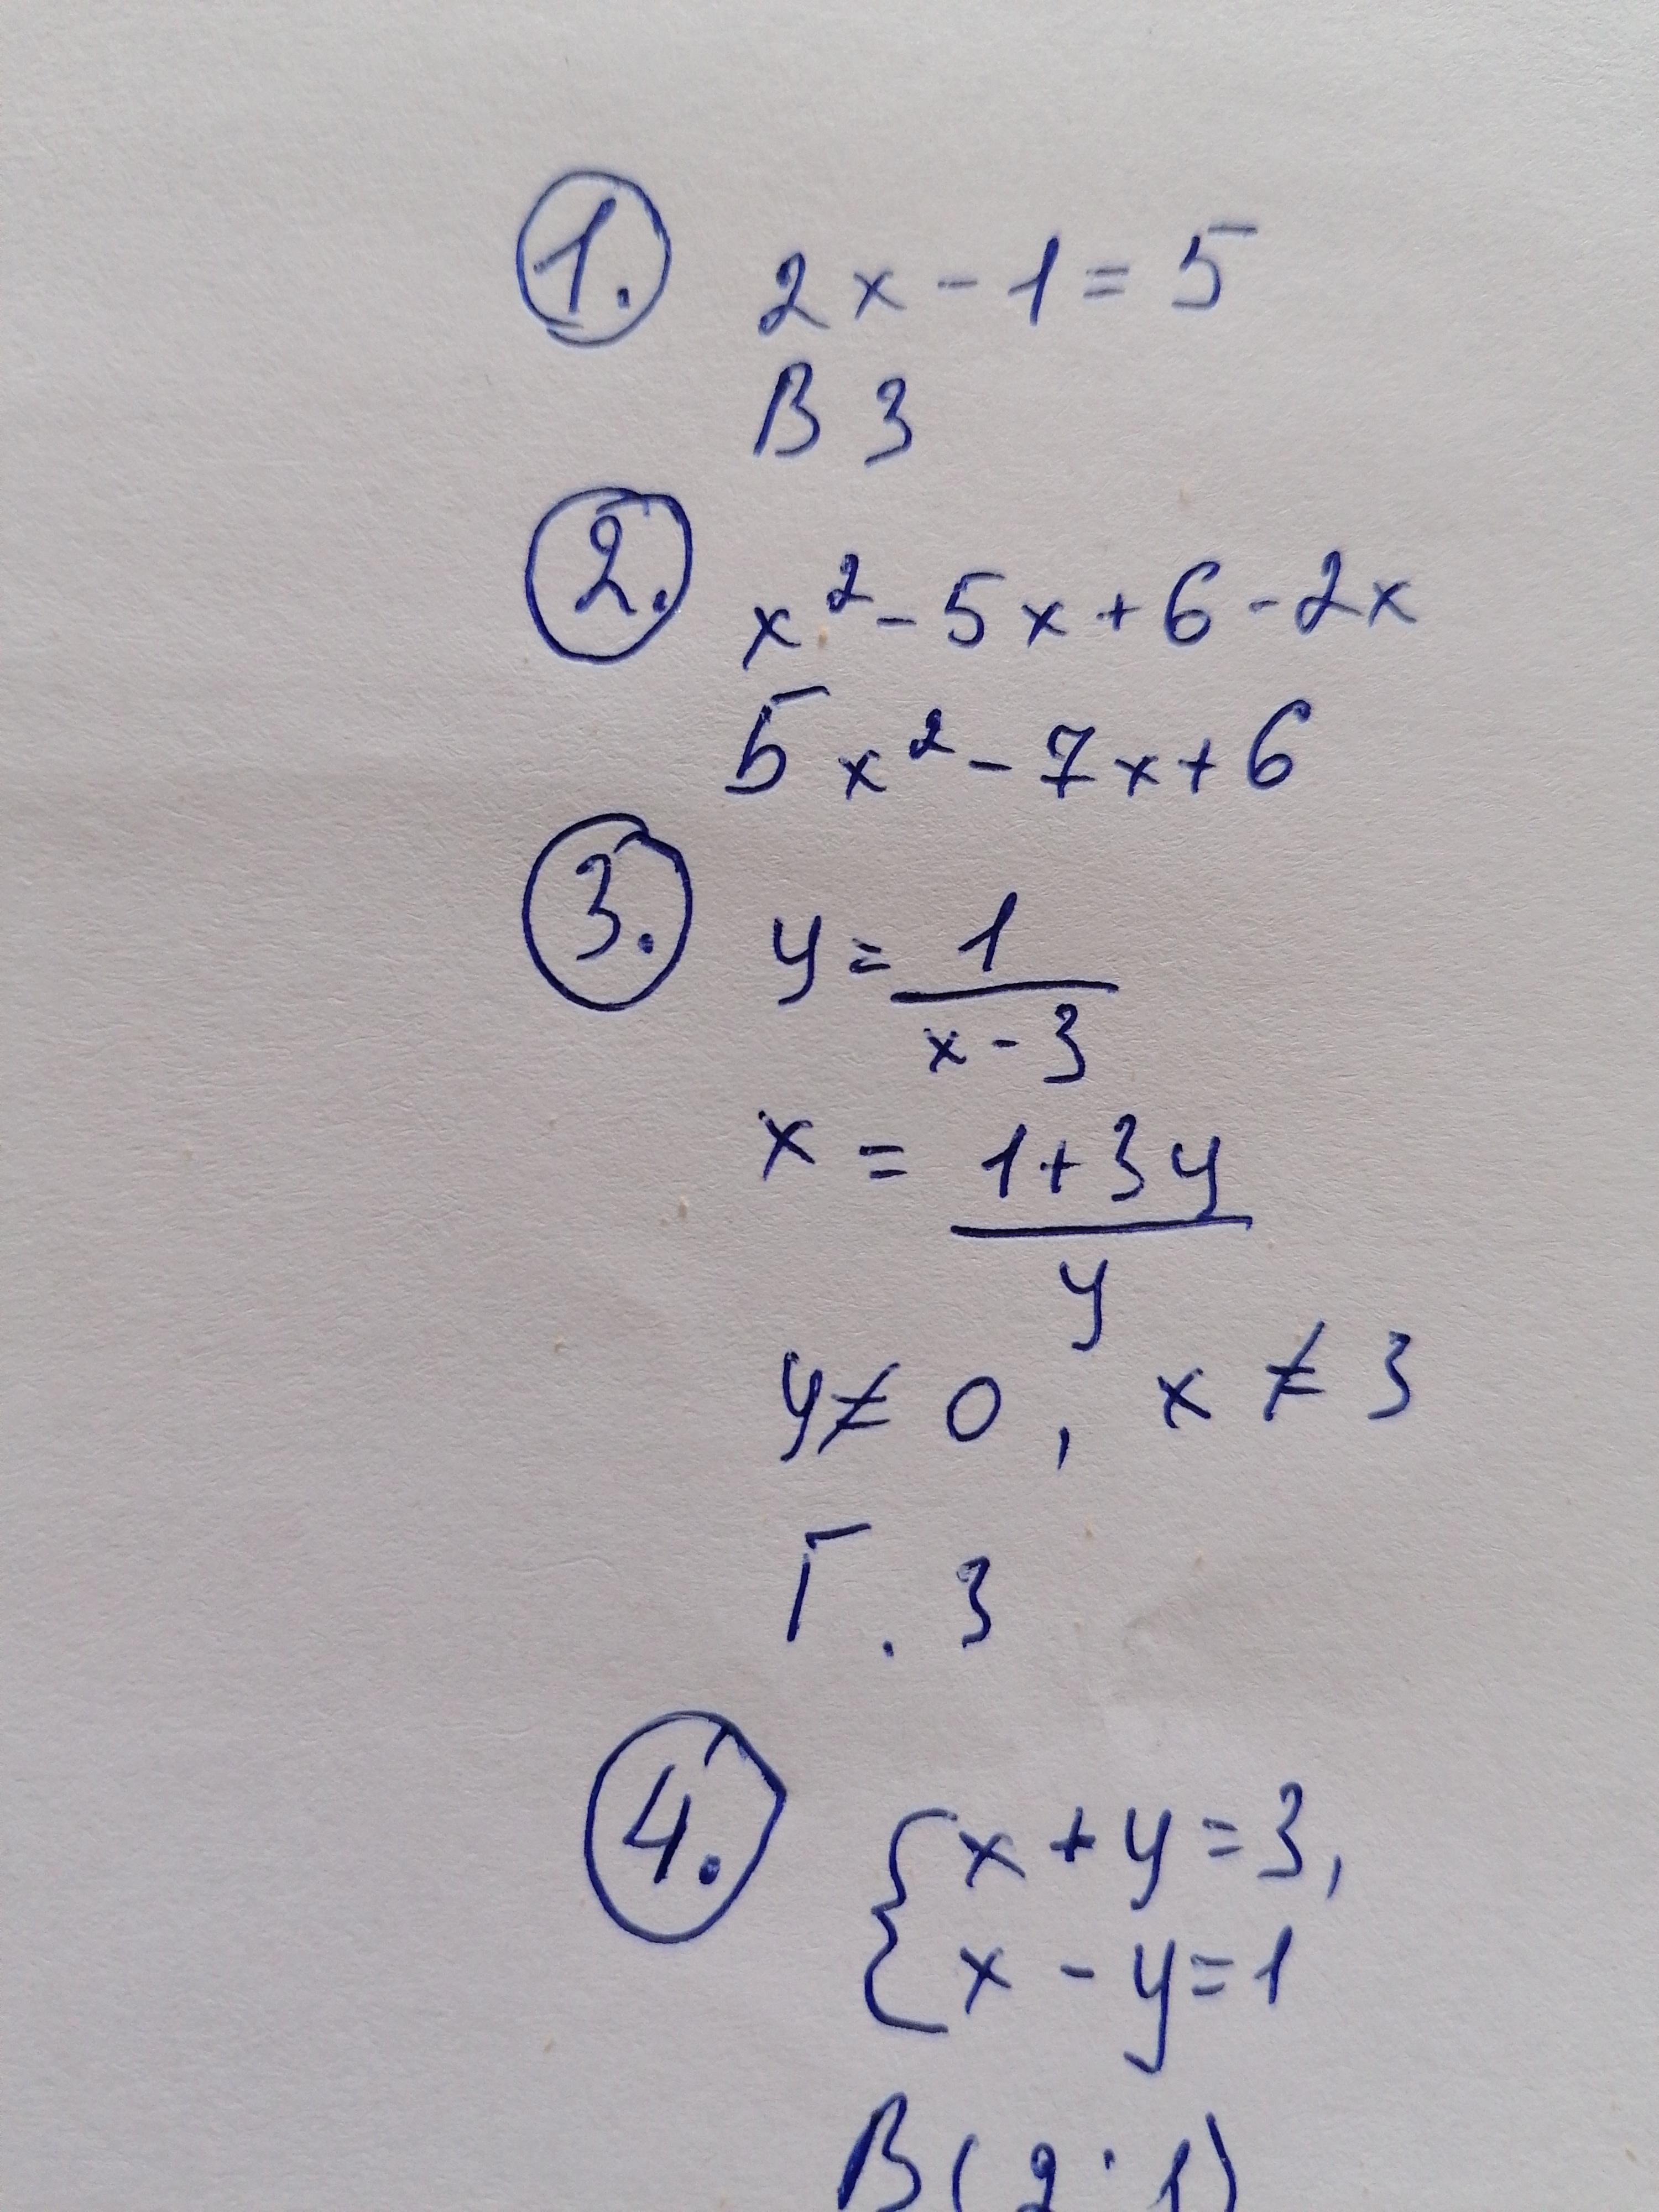 1. 2x - 1 = 5
В 3
2. x² - 5x + 6 - 2x
Б x² - 7x + 6
3. y = 1/(x - 3)
x = (1 + 3y)/y
y ≠ 0, x ≠ 3
Г. 3
4. { x + y = 3,
x - y = 1
В (2; 1)